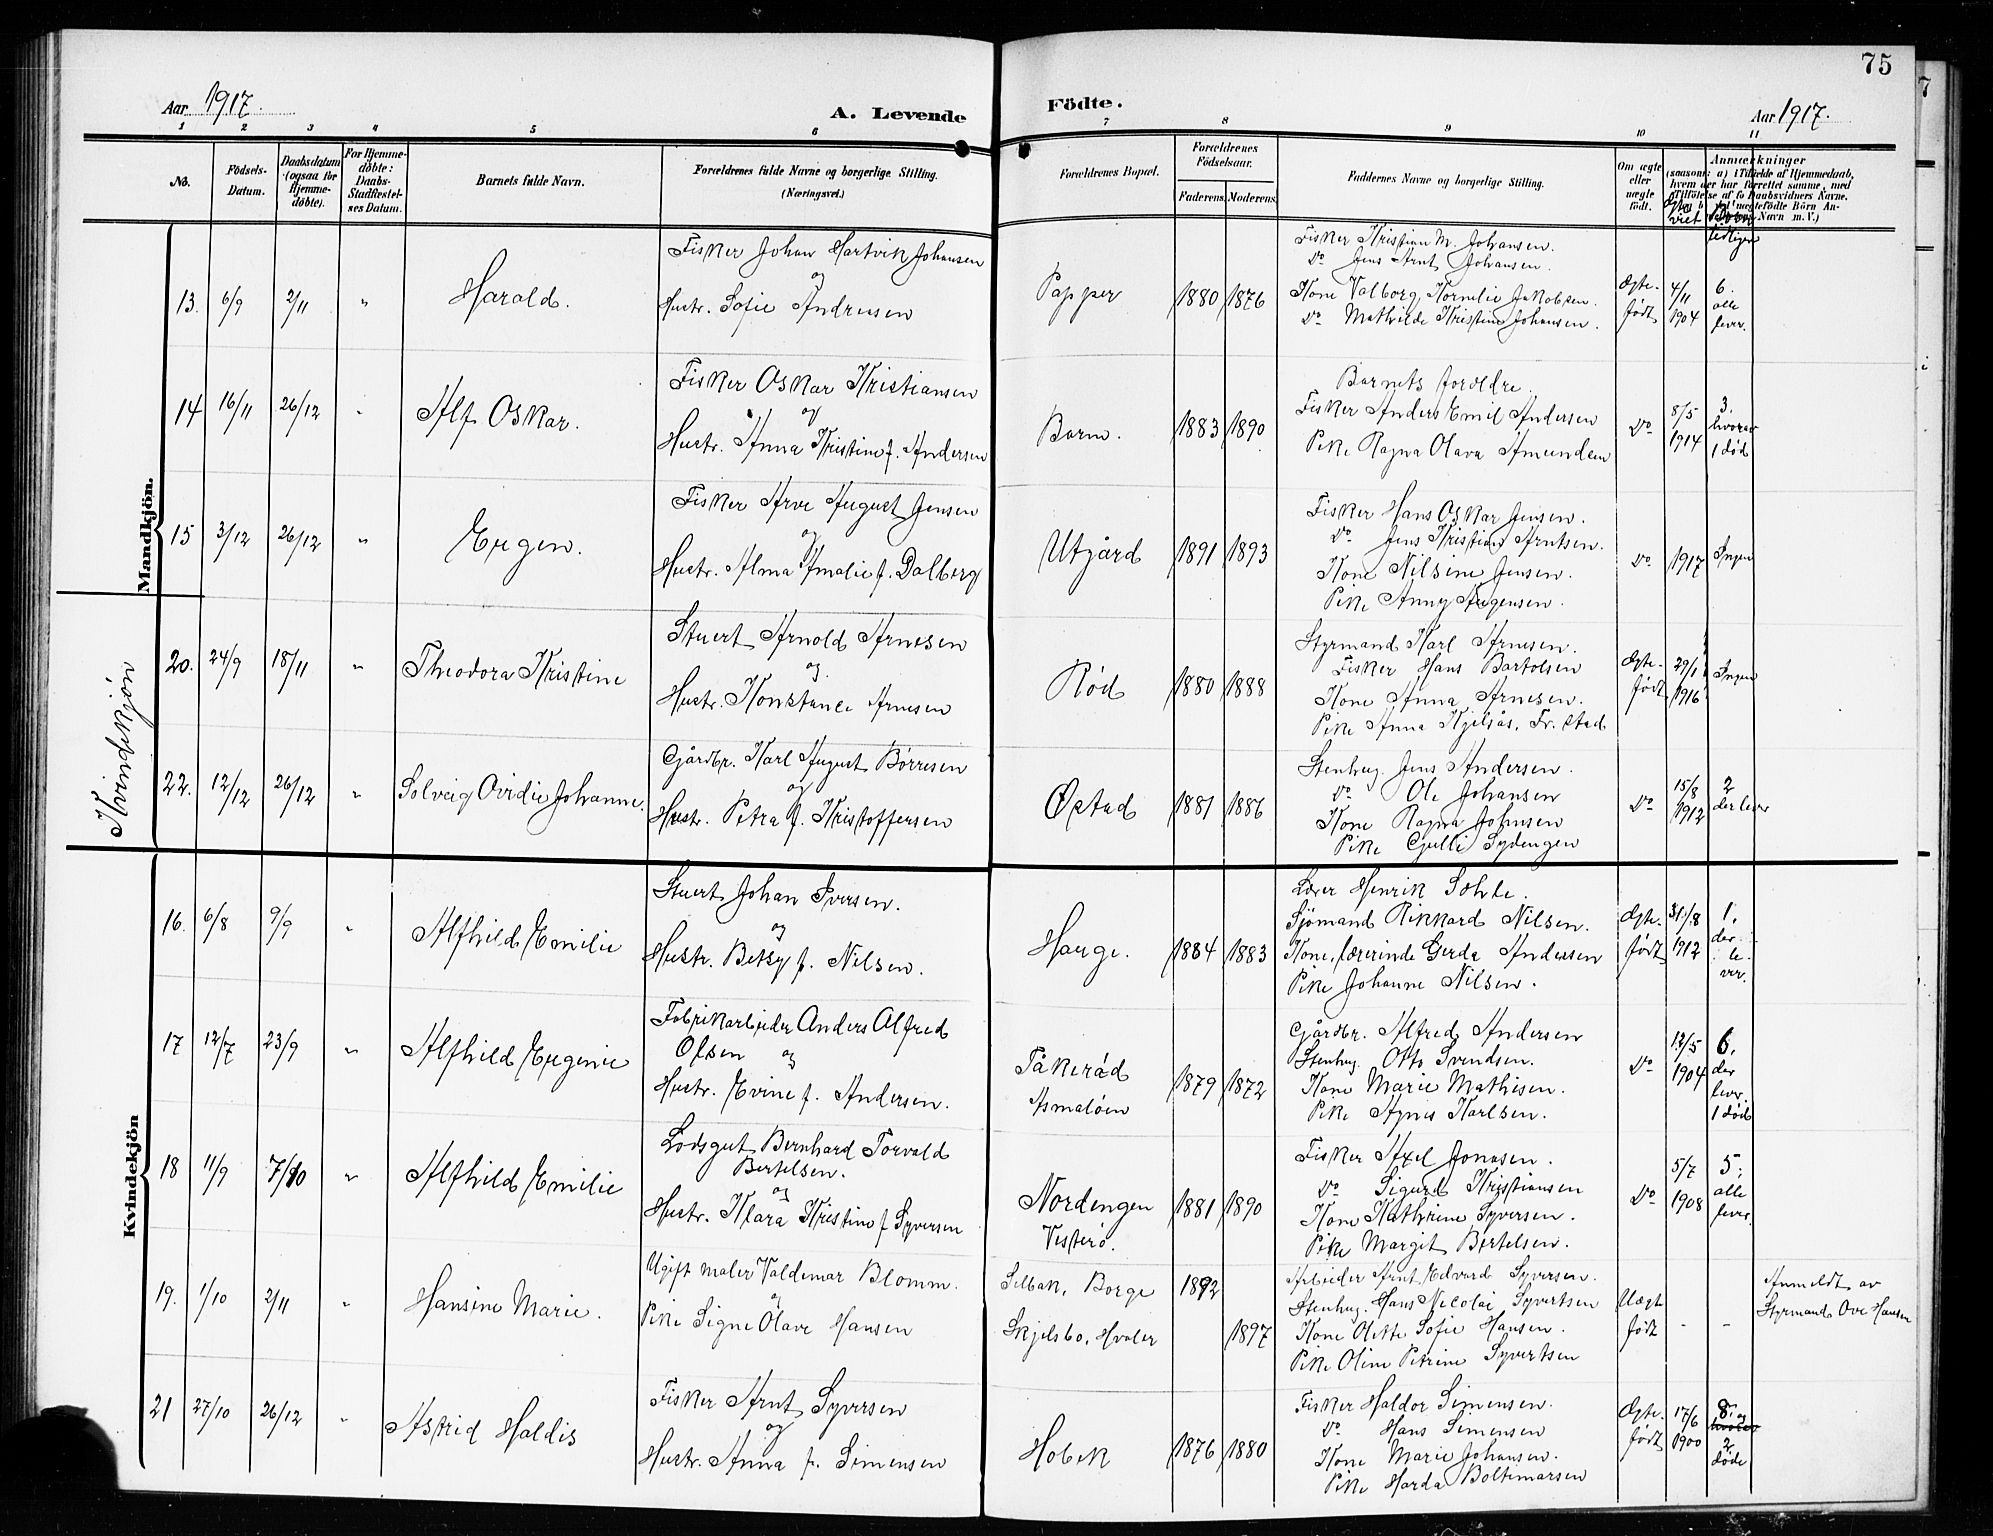 75
Aar 1917.
A. Levende
Födte.
Aar 1917.
1 2 3 4 5 6 7 8 9 10 11
No.
Födsels-
Datum.
Daabsdatum
(ogsaa for
Hjemme-
döbte).
For Hjemme-
döbte:
Daabs-
Stadfæstel-
ses Datum.
Barnets fulde Navn.
Forældrenes fulde Navne og borgerlige Stilling.
(Næringsvei.)
Forældrenes Bopæl.
Forældrenes
Födselsaar.
Faderens.
Moderens.
Faddernes Navne og borgerlige Stilling.
Om ægte
eller
uægte
födt.
Anmærkninger
Mandkjön.
13. 6/9 2/11 " Harald.
Fisker Johan Hartvik Johansen
og
Hustr. Sofie Andreasen
Papper 1880 1876
Fisker Kristian M. Johansen.
Do Jens Arnt Johansen.
Kone Valborg Kornelie Jakobsen.
Do Mathilde Kristine Johansen.
Ægte-
født
4/11
1904
6.
alle
lever.
14 16/11 26/12 " Alf Oskar.
Fisker Oskar Kristiansen
og
Hustr. Anna Kristine f. Andersen
Barm. 1883 1890
Barnets forældre.
Fisker Anders Emil Andersen
Pike Ragna Olava Amundsen
Do
8/5
1914
3.
hvorav
1 død
15 3/12 26/12 " Eugen.
Fisker Arve August Jensen
og
Hustr. Alma Amalie f. Dalberg
Utgård 1891 1893
Fisker Hans Oskar Jensen.
Do Jens Kristian Arntsen.
Kone Nilsine Jensen.
Pike Anny Augensen.
Do 1917 Ingen
Kvindekjøn
20. 24/9 18/11 " Theodora Kristine
Stuert Arnold Arnesen
og
Hustr. Konstance Arnesen
Rød 1880 1888
Styrmand Karl Arnesen.
Fisker Hans Bartolsen
Kone Anna Arnesen.
Pike Anna Kjelsås, Fr. stad
Ægte-
født
29/1
1916
Ingen
22. 12/12 26/12 " Solveig Ovidie Johanne.
Gårdbr. Karl August Børresen
og
Hustr. Petra f. Kristoffersen
Østad 1881 1886
Stenhug. Jens Andersen.
Do Ole Johansen
Kone Ragna Johnsen
Pike Gulli Sydengen
Do
15/8
1912
2
der lever
Kvindekjön
16. 6/8 9/9 " Alfhild Emilie
Stuert Johan Iversen.
og
Hustr. Betsy f. Nilsen.
Hauge. 1884 1883
Lærer Henrik Sohle.
Sjömand Rikkard Nilsen.
Kone, lærerinde Gerda Andersen
Pike Johanne Nilsen.
Ægte-
født
31/8
1912
1.
der
le-
ver.
17 12/7 23/9 " Alfhild Eugenie
Fabrikarbeider Anders Alfred
Olsen og
Hustr. Evine f. Andersen.
Tåkerød
Asmaløen
1879 1872
Gårdbr. Alfred Andersen
Stenhug. Otto Svendsen.
Kone Marie Mathisen.
Pike Agnes Karlsen.
Do
12/5
1904
6.
der
lever.
1 død
18 11/9 7/10 " Alfhild Emilie
Lodsgut Bernhard Torvald
Bertelsen.
og
Hustr. Klara Kristine f. Syversen
Nordengen
Vesterö.
1881 1890
Fisker Axel Jonasen.
Do Sigurd Kristiansen
Kone Kathrine Syversen.
Pike Margit Bertelsen.
Do
5/7
1908
5;
alle
lever.
19. 1/10 2/11 " Hansine Marie.
Ugift maler Valdemar Blomm.
og
Pike Signe Olave Hansen
Selbak, Borge 1892
Skjelsbo, Hvaler 1897
Arbeider Arnt Edvard Syversen.
Stenhug. Hans Nicolai Syvertsen
Kone Olette Sofie Hansen.
Pike Oline Petrine Syvertsen
Uægt
født
- -
Anmeldt av
Styrmand Ove Hansen
21 27/10 26/12 " Astrid Haldis
Fisker Arnt Syversen
og
Hustr. Anna f. Simensen
Hobek 1876 1880
Fisker Haldor Simensen.
Do Hans Simensen
Kone Marie Johansen.
Pike Harda Boltimarsen
Ægte-
født
17/6
1900
8. og
2
døde